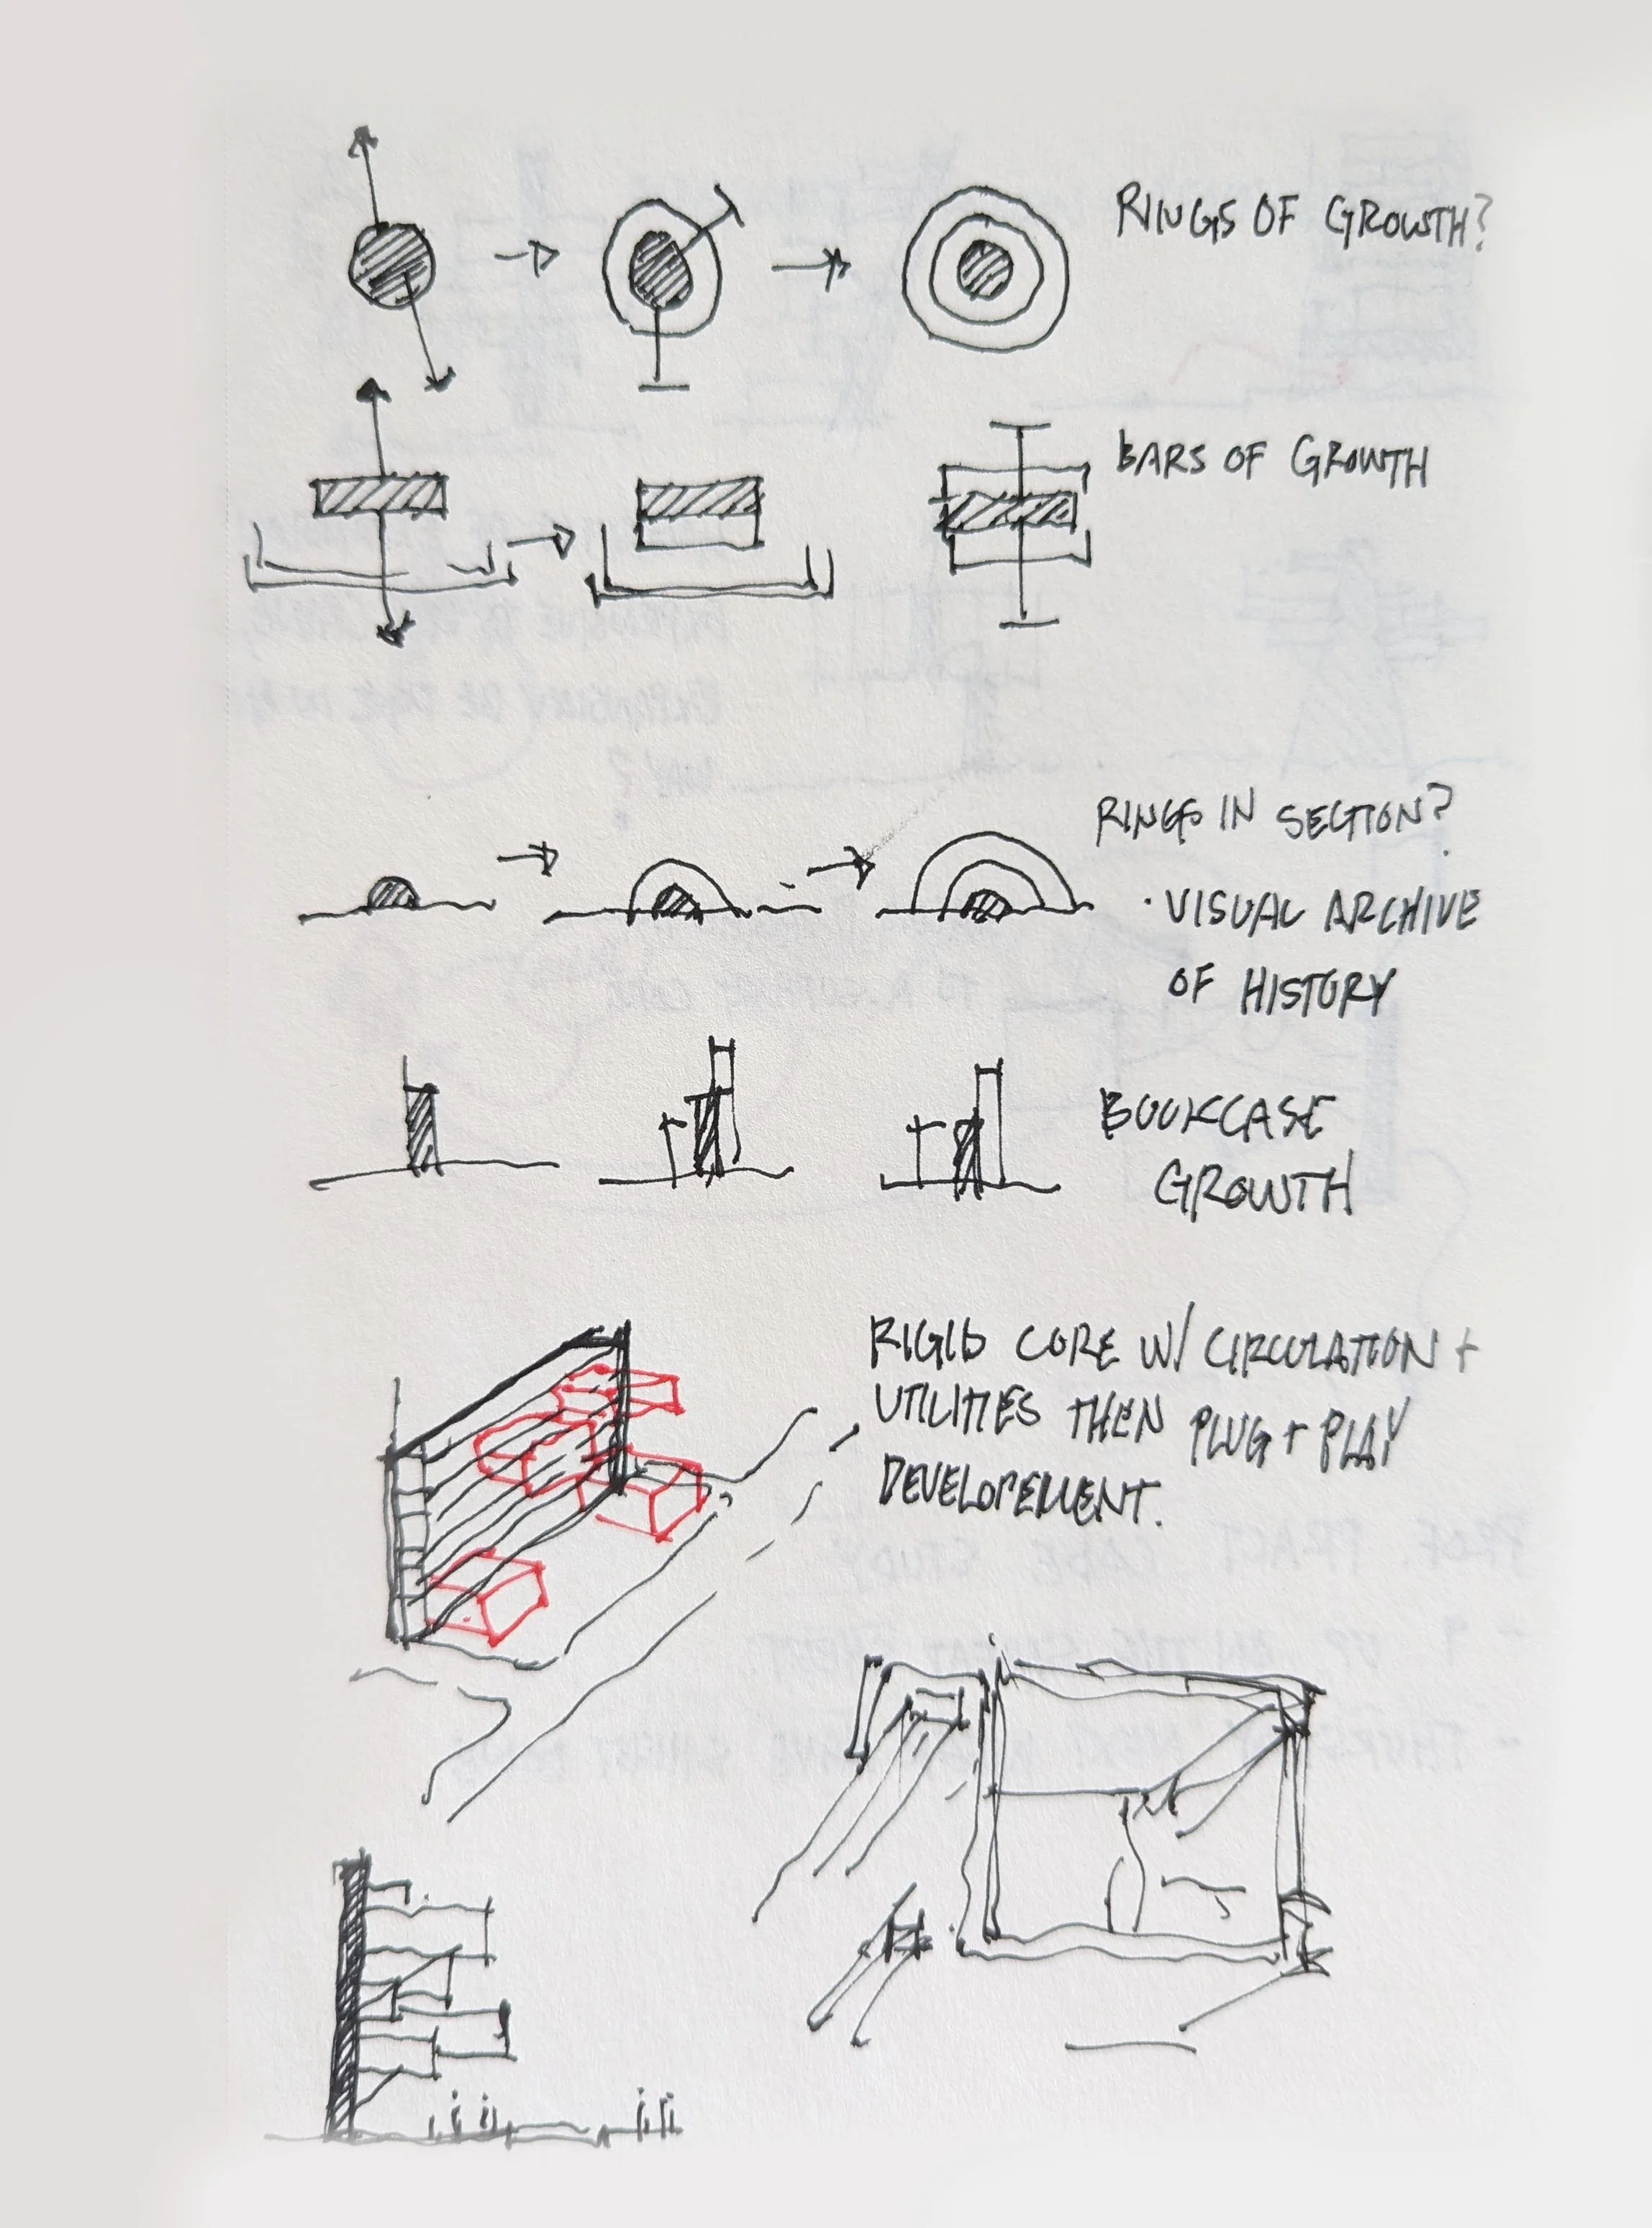 RINGS OF GROWTH?
BARS OF GROWTH
RINGS IN SECTION?
· VISUAL ARCHIVE
OF HISTORY
BOOKCASE
GROWTH
RIGID CORE W/ CIRCULATION +
UTILITIES THEN PLUG + PLAY
DEVELOPEMENT.